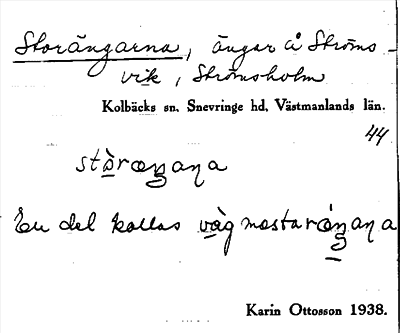 Storängarna, ängar å Ströms-
vik, Strömsholm
Kolbäcks sn. Snevringe hd. Västmanlands län.
44
stòræŋana
En del kallas vàgmastaræ̀ŋana
Karin Ottosson 1938.